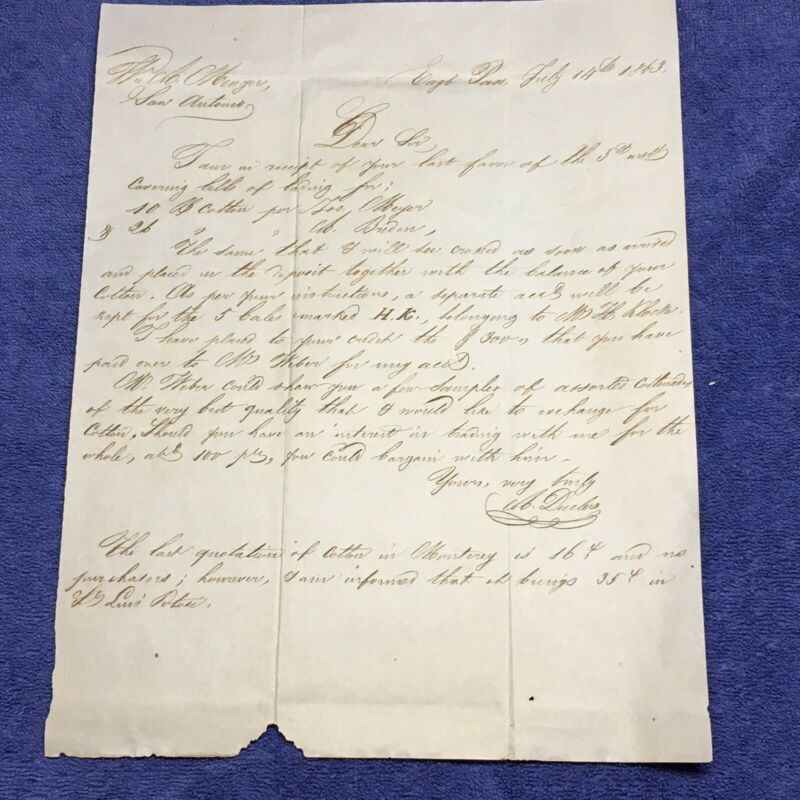 Menger, Eagl Pass, July 14th 1863.
San Antonio,
Dear Sir
I am in receipt of your last favor of the 5th
Covering bills of lading for:
10 B Cotton per Jos. Meyer
& 26 " " 
The same that I will be crossed as soon as
and placed in the deposit together with the balance of your
Cotton. As per your instructions, a separate acct will be
kept for the 5 bales marked H.K., belonging to Mr H.
I have placed to your credit the $ 300 that you have
paid over to Mr Weber for my acct.
Mr Weber could show you a few samples of assorted
of the very best quality that I would like to exchange for
Cotton. Should you have an interest in trading with me for the
whole, abt 100 ps, you could bargain with him.
Yours, very truly
The last quotation of Cotton in Monterey is 16 ¢ and no
purchasers; however, I am informed that it brings 35 ¢ in
Sn Luis Potosi.